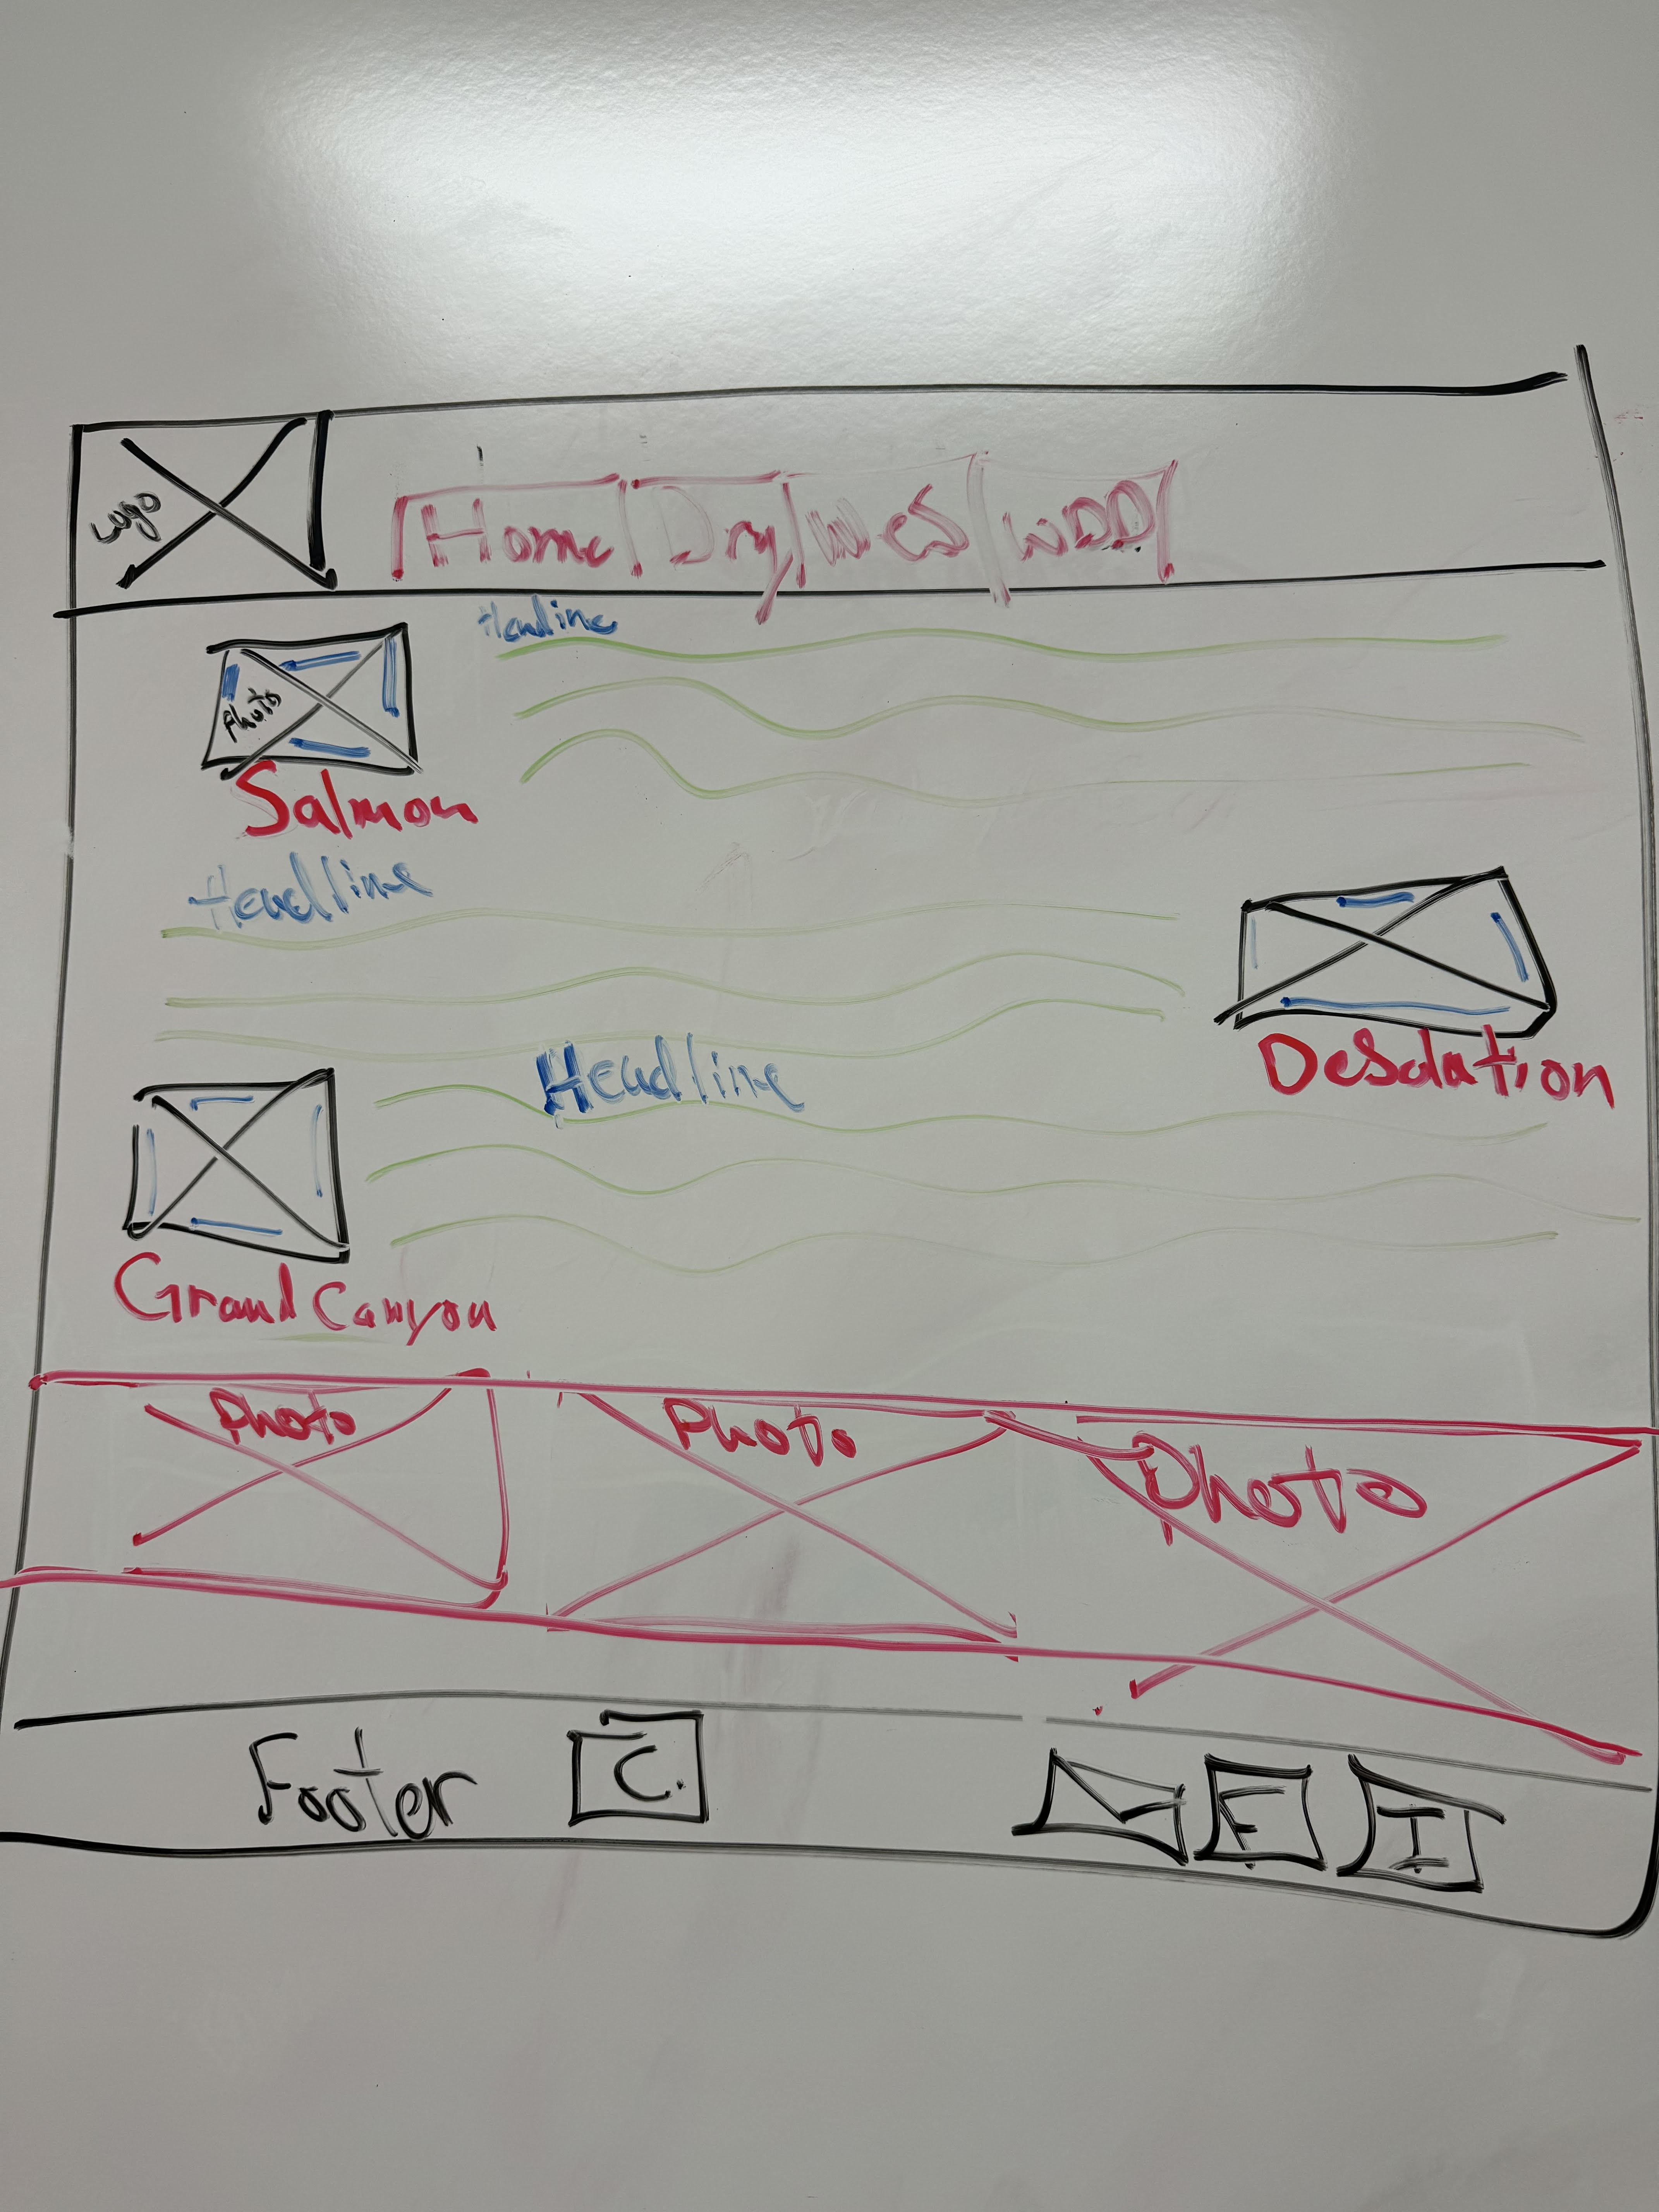 Logo
Home Dry Wes WDD
Headline
Photo
Salmon
Headline
Desolation
Headline
Grand Canyon
Photo Photo Photo
Footer C. F I